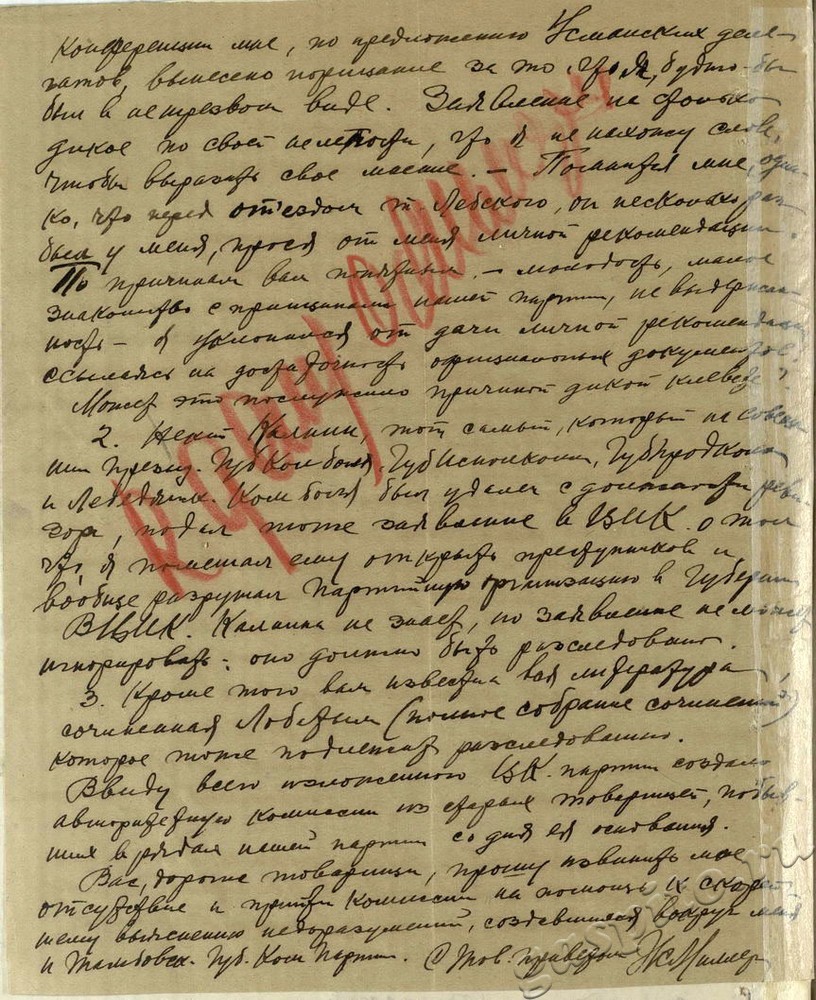 Конференции мне, по предложению Усманских деле-
гатов, вынесено порицание за то, что я, будто-бы
был в нетрезвом виде. Заявление настолько
дикое по своей нелепости, что я не нахожу слов,
чтобы выразить свое мнение. – Помнится мне, одна-
ко, что перед отъездом т. Лебского, он несколько раз
был у меня, прося от меня личной рекомендации.
По причинам вам понятным, – молодость, малое
знакомство с принципами нашей партии, не выдержан-
ность – я уклонился от дачи личной рекомендации
ссылаясь на достаточность официальных документов.
Может это послужило причиной дикой клевете?
2. Некий Калнин, тот самый, который на совеща
нии Презид. ГубКомболя, ГубИсполкома, Губпродкома
и Лебедянск. Комболя был удален с должности реви-
зора, подал тоже заявление в ВЦИК. о том
что, я помешал ему открыть преступников и,
вообще разрушал партийную организацию в Губернии
ВЦИК. Калнина не знает, но заявление не может
игнорировать: оно должно быть расследовано.
3. Кроме того вам известна вся литература,
сочиненная Лобовым (полное собрание сочинений)
которое тоже подлежит расследованию.
Ввиду всего изложенного ЦК. партии создало
авторитетную комиссию из старых товарищей, побыв-
ших в рядах нашей партии со дня ея основания.
Вас, дорогие товарищи, прошу извинить мое
отсутствие и прийти комиссии на помощь к скорей-
шему выяснению недоразумений, создавшихся вокруг меня
и Тамбовск. Губ. Ком Партии. С тов. приветом Миллер
gaspito.ru